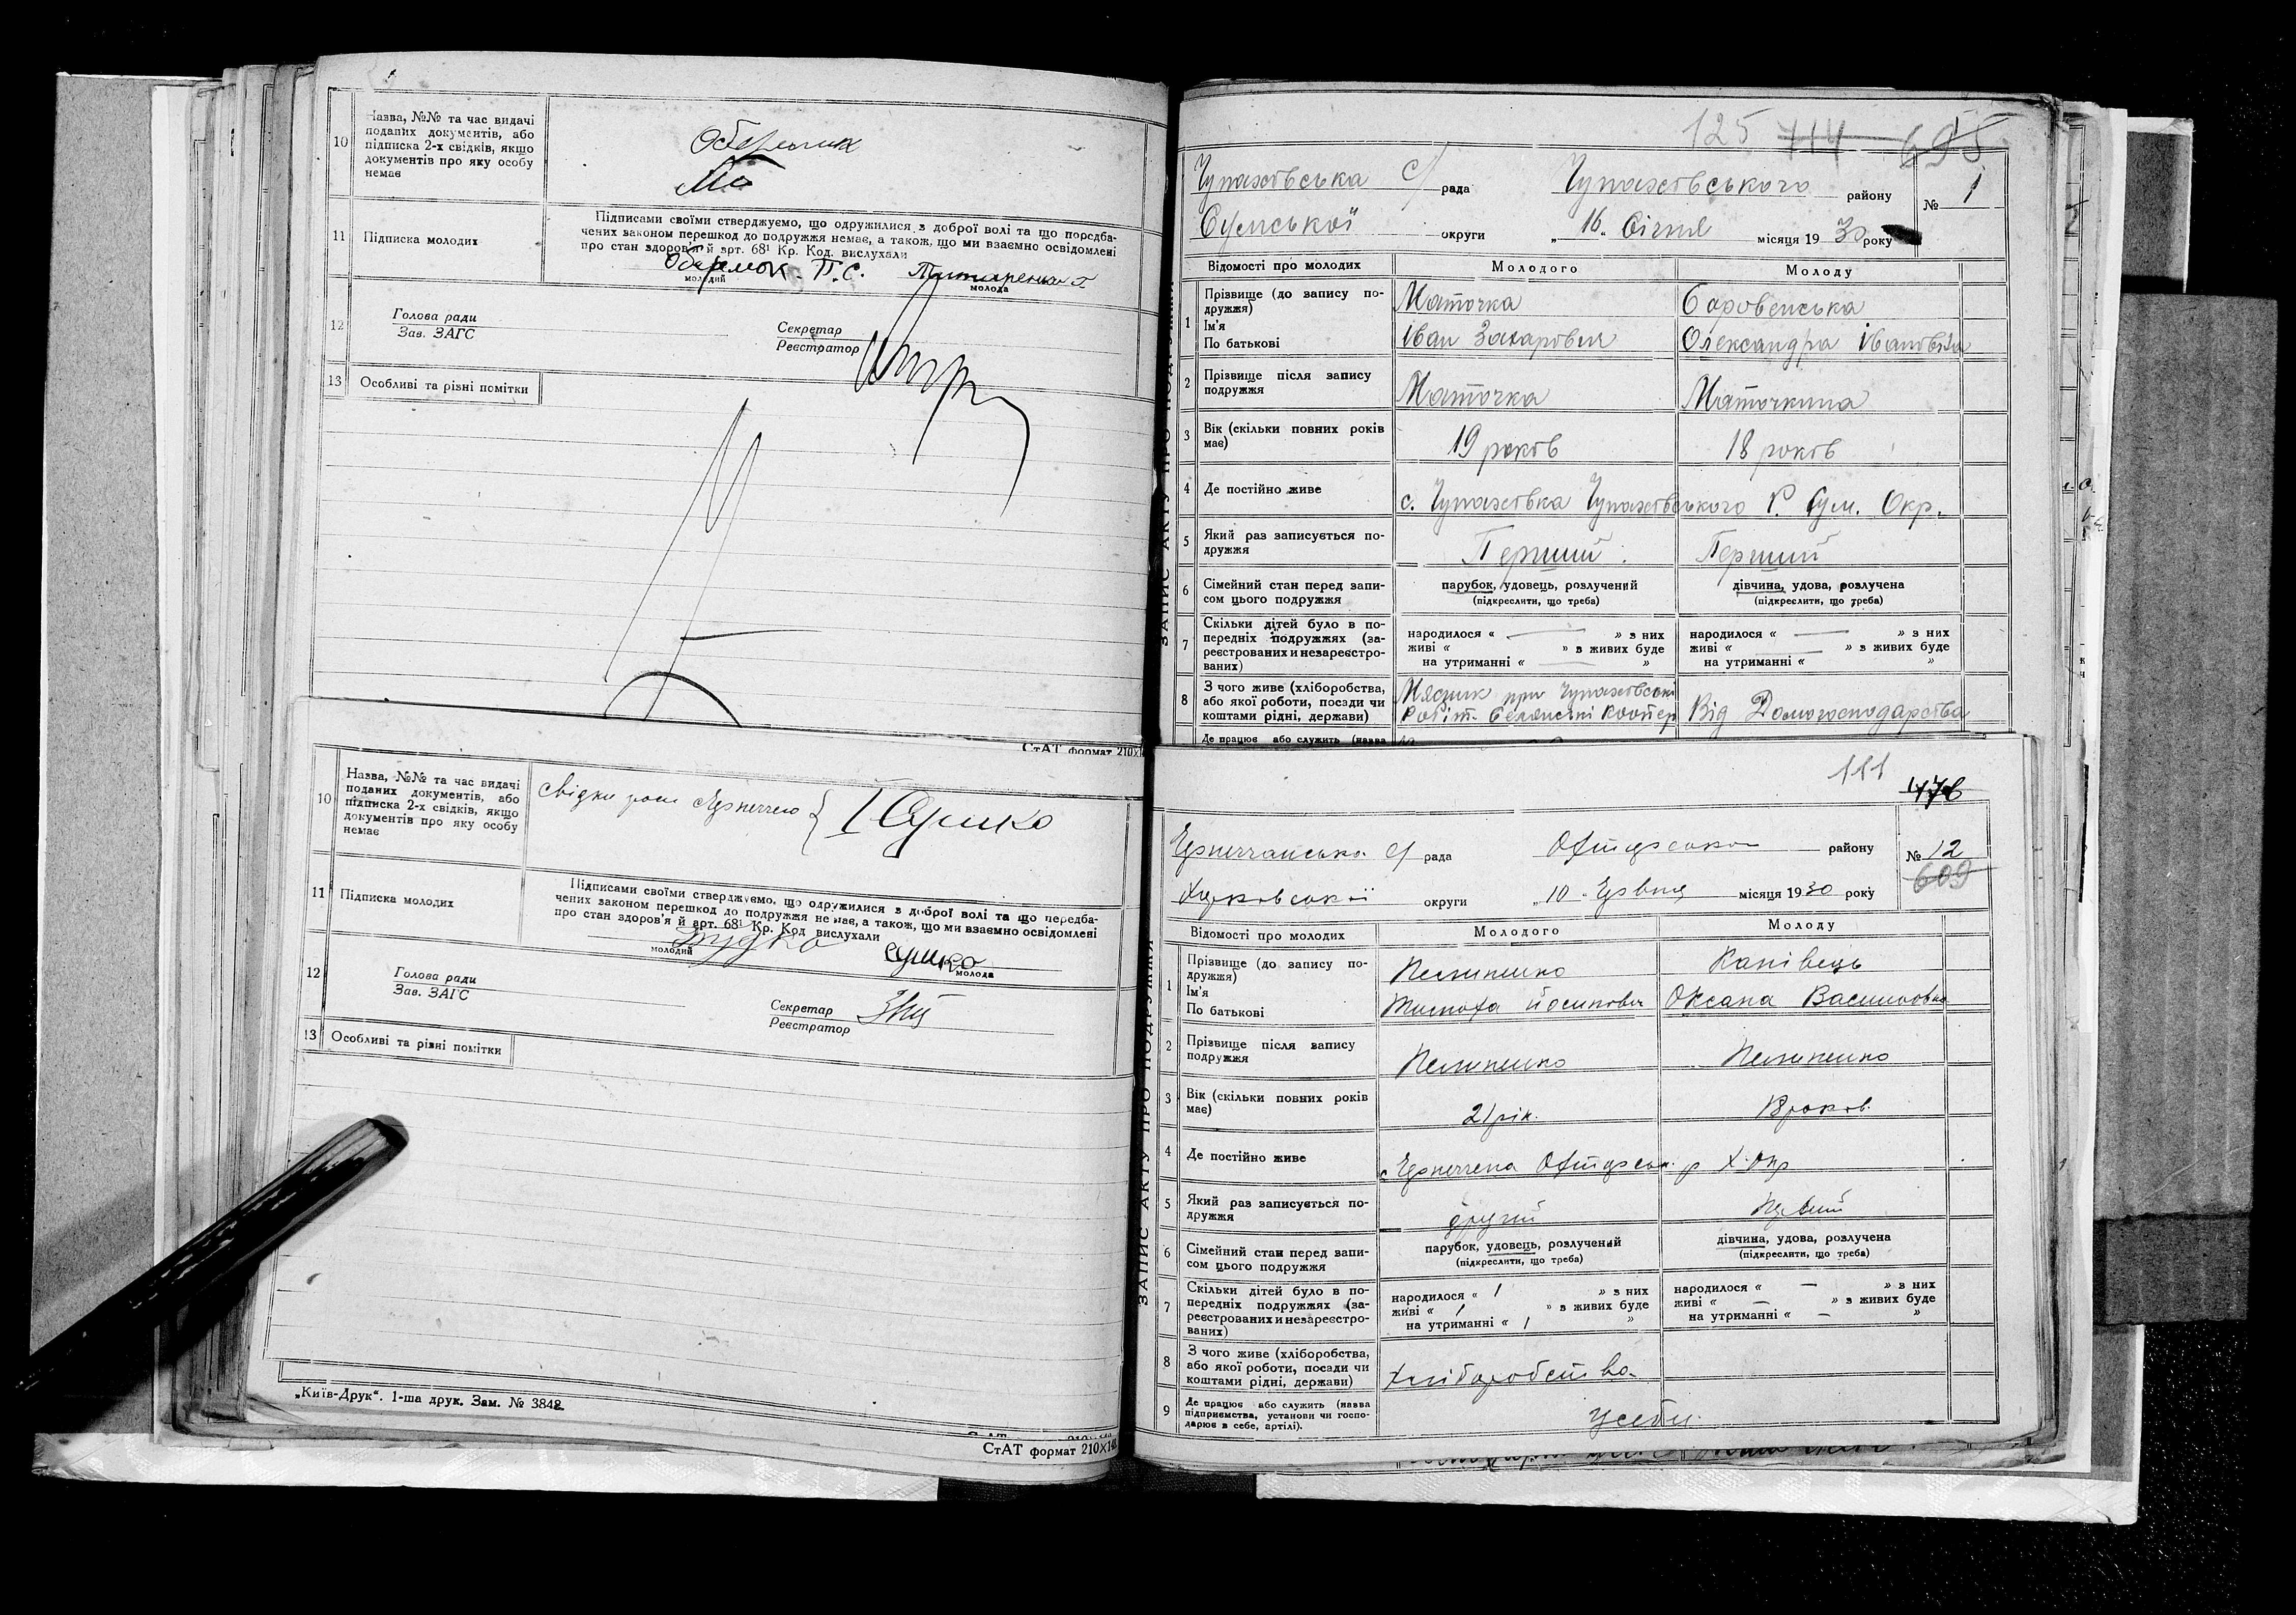 10 Назва, №№ та час видачі
поданих документів, або
підписка 2-х свідків, якщо
документів про яку особу
немає
11 Підписка молодих
Підписами своїми стверджуємо, що одружилися з доброї волі та що передба-
чених законом перешкод до подружжя немає, а також, що ми взаємно освідомлені
про стан здоров'я й арт. 68¹ Кр. Код. вислухали
Обермок П. С.
молодий
молода
12 Голова ради
Зав. ЗАГС
Секретар
Реєстратор
13 Особливі та різні помітки
СтАТ формат 210×1
10 Назва, №№ та час видачі
поданих документів, або
підписка 2-х свідків, якщо
документів про яку особу
немає
свідки
Сушко
11 Підписка молодих
Підписами своїми стверджуємо, що одружилися з доброї волі та що передба-
чених законом перешкод до подружжя немає, а також, що ми взаємно освідомлені
про стан здоров'я й арт. 68¹ Кр. Код вислухали
молодий
Сушко
молода
12 Голова ради
Зав. ЗАГС
Секретар
Реєстратор
13 Особливі та різні помітки
„Київ-Друк“. 1-ша друк. Зам. № 3842
СтАТ формат 210×148
125 714 695
Чупахівська С/ рада Чупахівського району № 1
Сумської округи „16„ Січня місяця 1930 року
ЗАПИС АКТУ ПРО ПОДРУЖЖЯ
Відомості про молодих Молодого Молоду
1 Прізвище (до запису по-
дружжя) Маточка Боровенська
Ім'я
По батькові Іван Захарович Олександра Івановна
2 Прізвище після запису
подружжя Маточка Маточкина
3 Вік (скільки повних років
має) 19 років 18 років
4 Де постійно живе с. Чупахівка Чупахівського Р. Сум. Окр.
5 Який раз записується по-
дружжя Перший Перший
6 Сімейний стан перед запи-
сом цього подружжя
парубок, удовець, розлучений дівчина, удова, розлучена
(підкреслити, що треба) (підкреслити, що треба)
7 Скільки дітей було в по-
передніх подружжях (за-
реєстрованих и незареєстро-
ваних)
народилося « — » з них народилося « — » з них
живі « » в живих буде живі « — » в живих буде
на утриманні « — » на утриманні « »
8 З чого живе (хліборобства,
або якої роботи, посади чи
коштами рідні, держави)
Мясник при Чупахівські
Робіт. Селянські Коопер Від Домогосподарства
Де працює або служить (назва
111 476
рада району № 12
609
Харковської округи „10„ місяця 1930 року
ЗАПИС АКТУ ПРО ПОДРУЖЖЯ
Відомості про молодих Молодого Молоду
1 Прізвище (до запису по-
дружжя) Канівець
Ім'я
По батькові Тимоха Йосипович Оксана Василовна
2 Прізвище після запису
подружжя
3 Вік (скільки повних років
має) 21 рік. 18 років.
4 Де постійно живе
5 Який раз записується по-
дружжя другий Первий
6 Сімейний стан перед запи-
сом цього подружжя
парубок, удовець, розлучений дівчина, удова, розлучена
(підкреслити, що треба) (підкреслити, що треба)
7 Скільки дітей було в по-
передніх подружжях (за-
реєстрованих и незареєстро-
ваних)
народилося « 1 » з них народилося « — » з них
живі « 1 » в живих буде живі « — » в живих буде
на утриманні « 1 » на утриманні « — »
8 З чого живе (хліборобства,
або якої роботи, посади чи
коштами рідні, держави)
Хліборобства
9 Де працює або служить (назва
підприємства, установи чи госпо-
дарює в себе, артілі).
У себи.